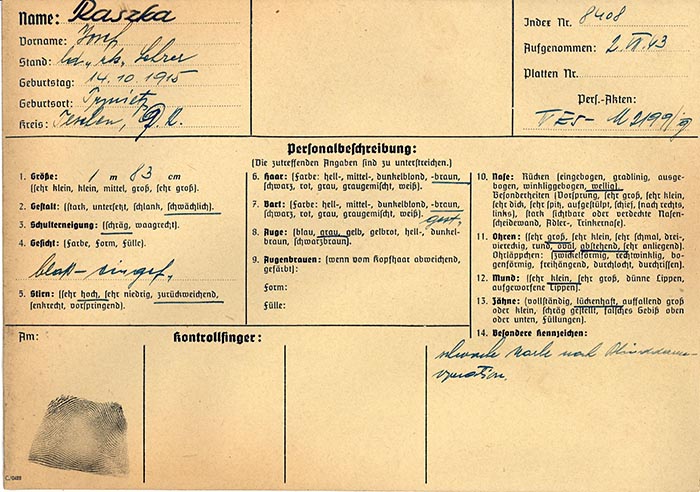 Name: Raszka
Vorname: Josef
Stand: led., rk., Lehrer
Geburtstag: 14.10.1915
Geburtsort: Trzynietz
Kreis: Teschen, O.S.
Index Nr. 8408
Aufgenommen: 2. VI. 43
Platten Nr.
Pers.-Akten:
M 2199/g
Personalbeschreibung:
(Die zutreffenden Angaben sind zu unterstreichen.)
1. Größe: 1 m 83 cm
(sehr klein, klein, mittel, groß, sehr groß).
2. Gestalt: (stark, untersetzt, schlank, schwächlich).
3. Schulterneigung: (schräg, waagrecht).
4. Gesicht: (Farbe, Form, Fülle).
blaß - eingef.
5. Stirn: (sehr hoch, sehr niedrig, zurückweichend,
senkrecht, vorspringend).
6. Haar: (Farbe: hell-, mittel-, dunkelblond, -braun,
schwarz, rot, grau, graugemischt, weiß).
7. Bart: (Farbe: hell-, mittel-, dunkelblond, -braun,
schwarz, rot, grau, graugemischt, weiß).
8. Auge: (blau, grau, gelb, gelbrot, hell-, dunkel-
braun, schwarzbraun).
9. Augenbrauen: (wenn vom Kopfhaar abweichend,
gefärbt):
Form:
Fülle:
10. Nase: Rücken (eingebogen, gradlinig, ausge-
bogen, winkliggebogen, wellig).
Besonderheiten (Vorsprung, sehr groß, sehr klein,
sehr dick, sehr spitz, aufgestülpt, schief, (nach rechts,
links), stark sichtbare oder verdeckte Nasen-
scheidewand, Adler-, Trinkernase).
11. Ohren: (sehr groß, sehr klein, sehr schmal, drei-,
viereckig, rund, oval, abstehend, sehr anliegend).
Ohrläppchen: (zwickelförmig, rechtwinklig, bo-
genförmig, freihängend, durchlocht, durchrissen).
12. Mund: (sehr klein, sehr groß, dünne Lippen,
aufgeworfene Lippen).
13. Zähne: (vollständig, lückenhaft, auffallend groß
oder klein, schräg gestellt, falsches Gebiß oben
oder unten, Füllungen).
14. Besondere Kennzeichen:
schwache Narbe nach Blinddarm-
operation.
Am:
Kontrollfinger: